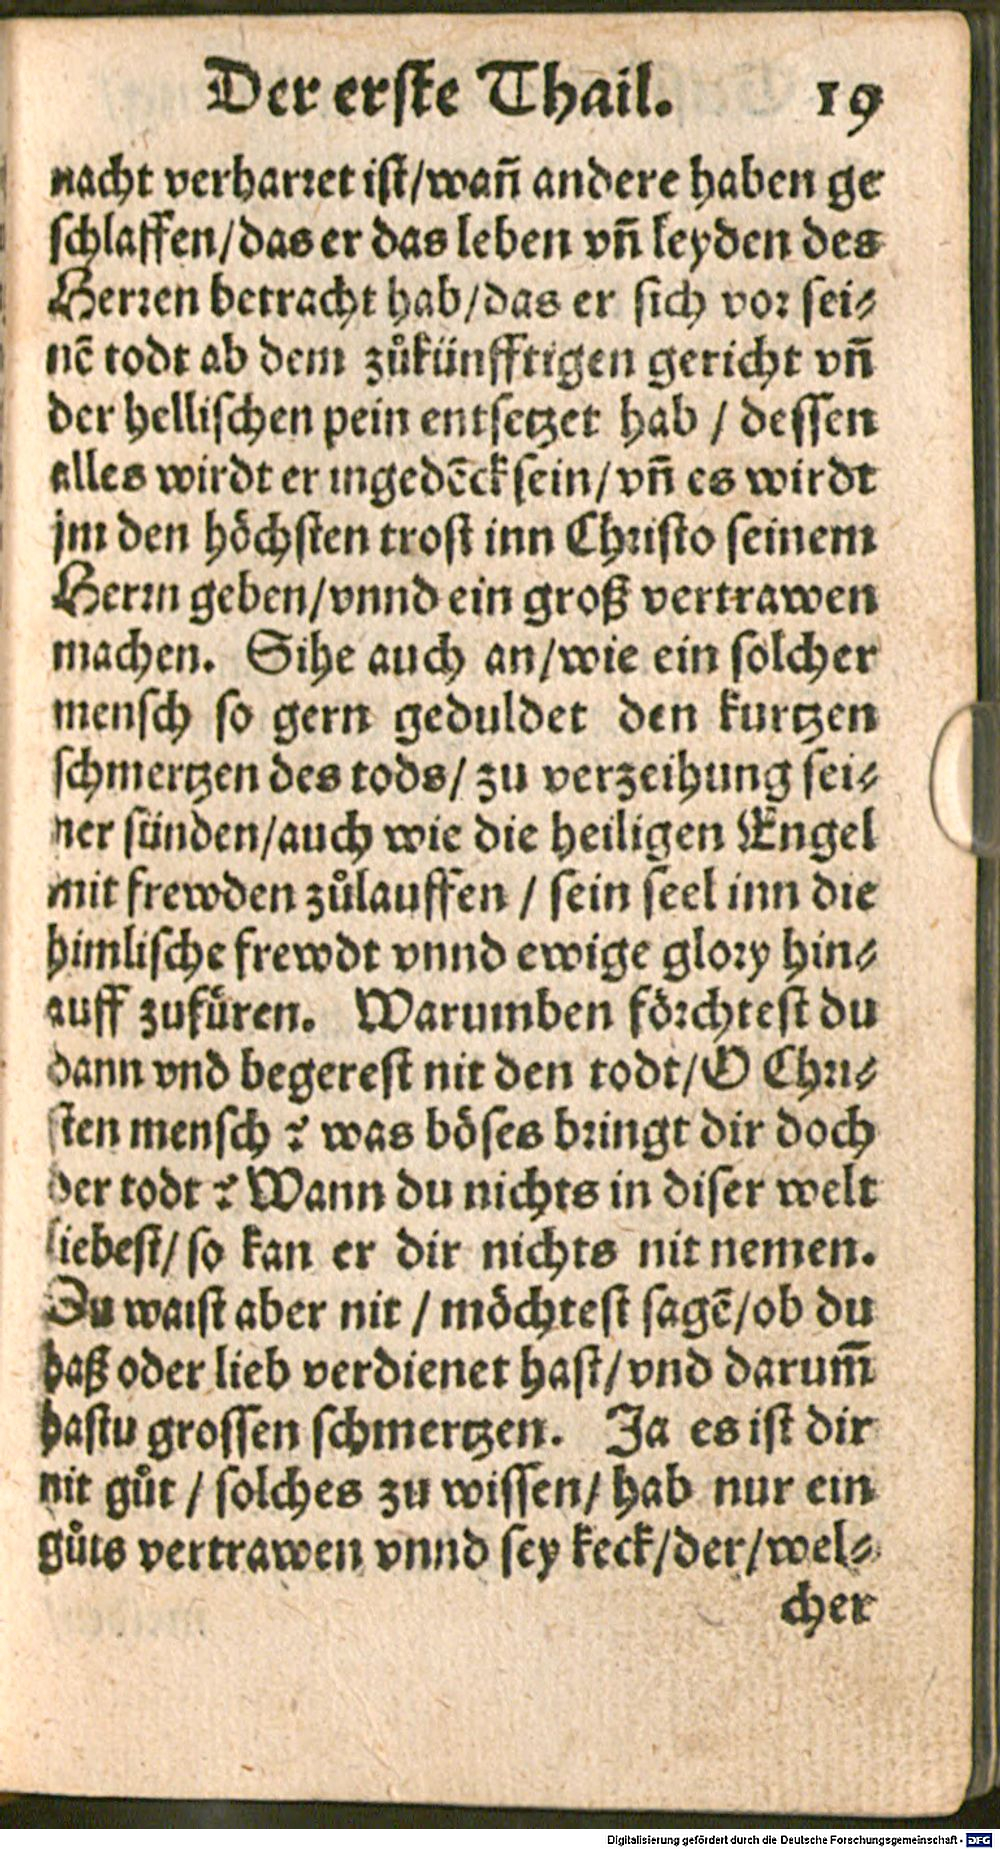 Der erste Thail. 19
nacht verharret ist/wañ andere haben ge
schlaffen/das er das leben vñ leyden des
Herren betracht hab/das er sich vor sei⸗
nē todt ab dem zůkünfftigen gericht vñ
der hellischen pein entsetzet hab / dessen
alles wirdt er ingedēck sein/vñ es wirdt
jm den höchsten trost inn Christo seinem
Herrn geben/vnnd ein groß vertrawen
machen. Sihe auch an/wie ein solcher
mensch so gern geduldet den kurtzen
schmertzen des tods/ zu verzeihung sei⸗
ner sünden/auch wie die heiligen Engel
mit frewden zůlauffen / sein seel inn die
himlische frewdt vnnd ewige glory hin⸗
auff zufüren. Warumben förchtest du
dann vnd begerest nit den todt/O Chri⸗
sten mensch ? was böses bringt dir doch
der todt ? Wann du nichts in diser welt
liebest/ so kan er dir nichts nit nemen.
Du waist aber nit / möchtest sagē/ob du
haß oder lieb verdienet hast/vnd darum̄
hastu grossen schmertzen. Ja es ist dir
nit gůt / solches zu wissen/ hab nur ein
gůts vertrawen vnnd sey keck/der/wel⸗
cher
Digitalisierung gefördert durch die Deutsche Forschungsgemeinschaft - DFG